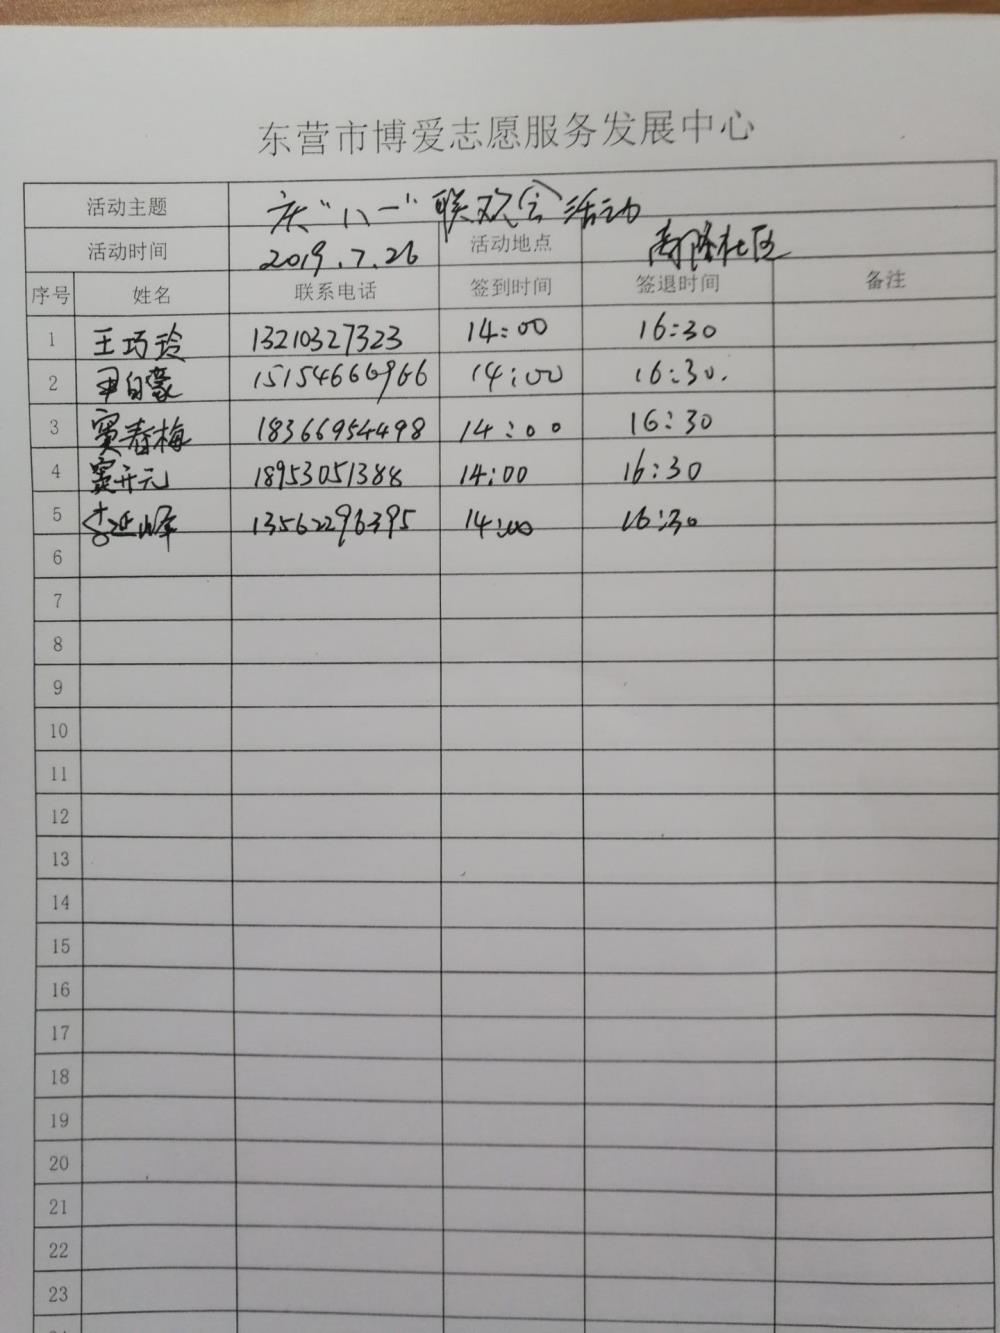 东营市博爱志愿服务发展中心
活动主题 庆“八一”联欢会活动
活动时间 2019.7.26 活动地点 社区
序号 姓名 联系电话 签到时间 签退时间 备注
1 王巧玲 13210327323 14:00 16:30
2 尹自豪 15154666966 14:00 16:30.
3 窦春梅 18366954498 14:00 16:30
4 窦开元 18953051388 14:00 16:30
5 李延峰 13562296395 14:00 16:30
6
7
8
9
10
11
12
13
14
15
16
17
18
19
20
21
22
23